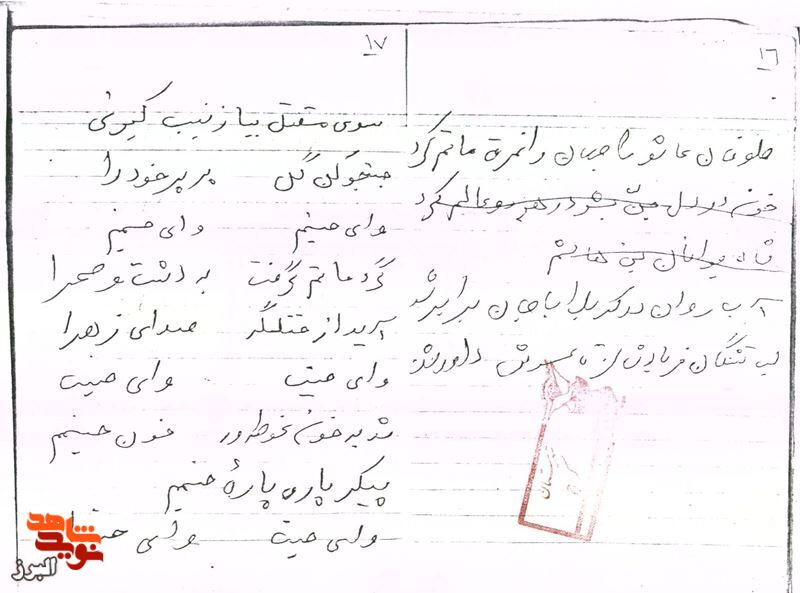 ۱۶
طوفان عاشورا جهان را غرق ماتم کرد
خون در دل جن بشر در هر دو عالم کرد
شاه جوانان بنی هاشم
آب روان در کربلا با جان برابر شد
لب تشنگان فریادش
۱۷
سوی مقتل بیا زینب کبری
جستجو کن گل پرپر خود را
وای حسینم وای حسینم
گرد ماتم گرفت به دشت و صحرا
آید از قتلگه صدای زهرا
وای حسین وای حسین
شد به خون غوطه‌ور خون حسینم
پیکر پاره پارهٔ حسینم
وای حسین وای
نوید شاهد
البرز